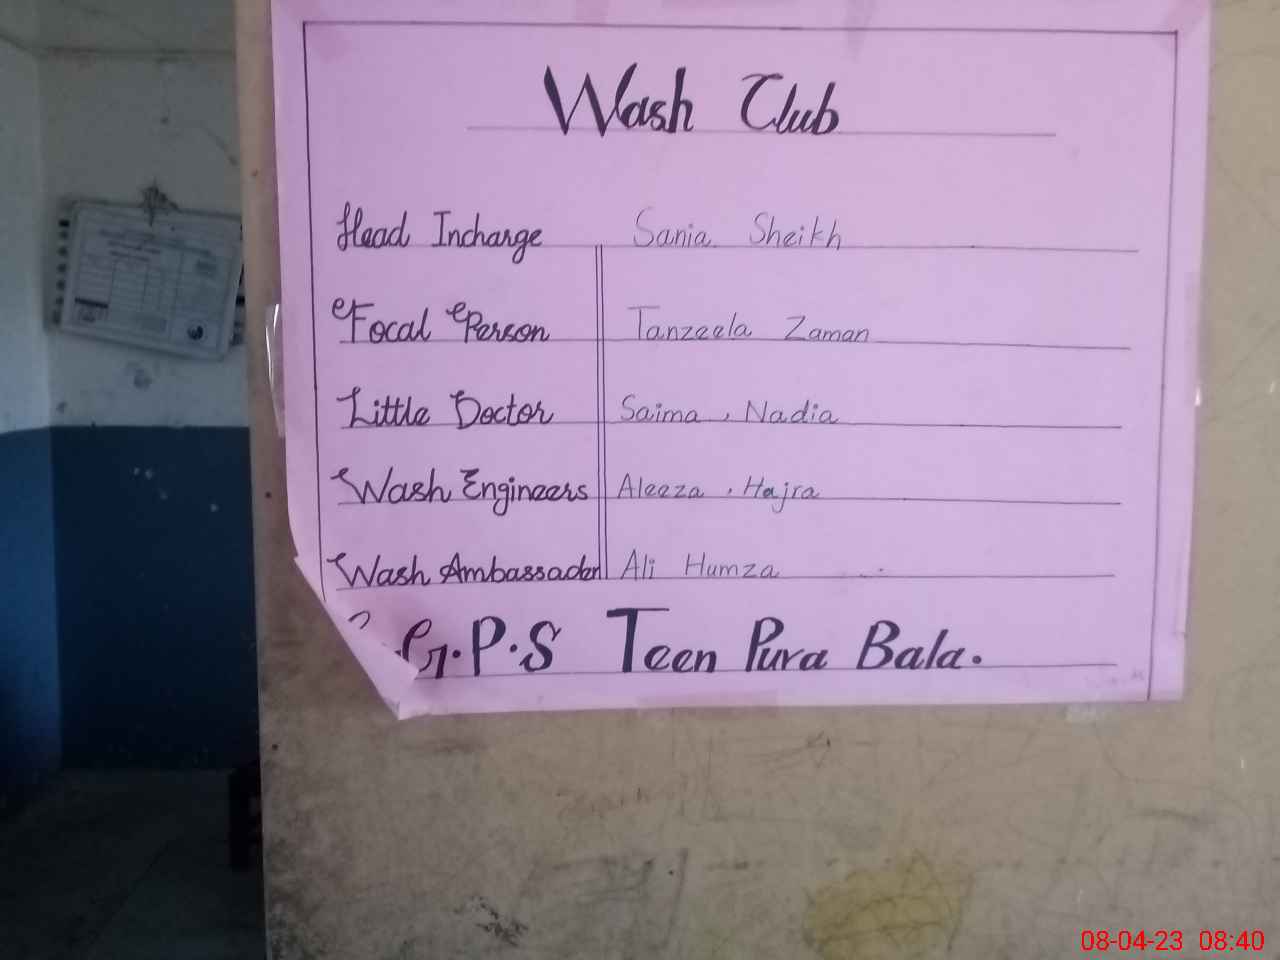 Wash Club
Head Incharge Sania Sheikh
Focal Person Tanzeela Zaman
Little Doctor Saima , Nadia
Wash Engineers Aleeza , Hajra
Wash Ambassador Ali Humza
G.P.S Teen Pura Bala.
08-04-23 08:40